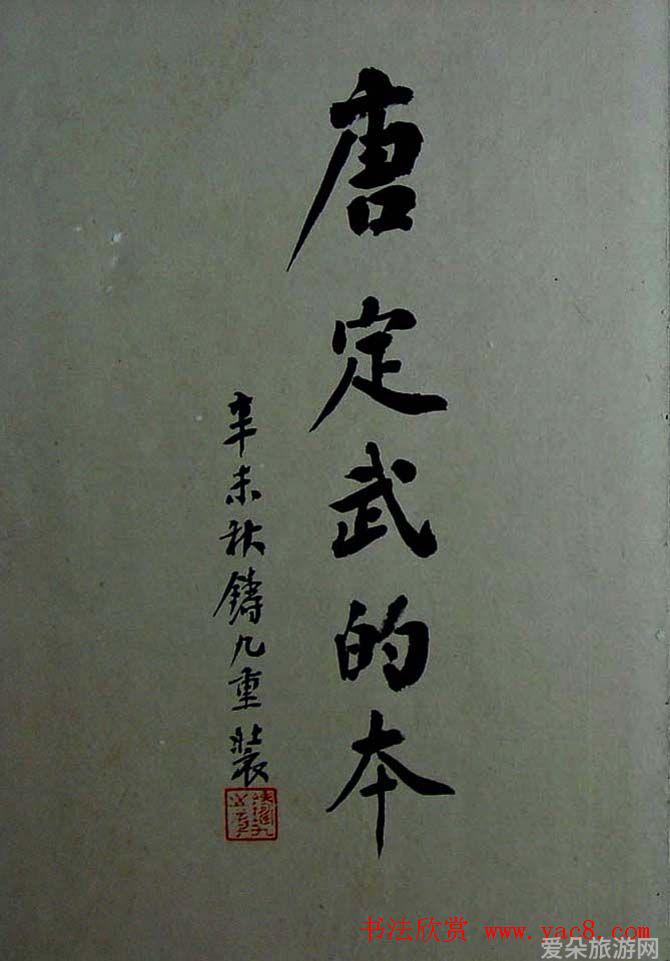 唐定武的本
辛未秋鑄九重裝
书法欣赏 www.yac8.com
爱朵旅游网